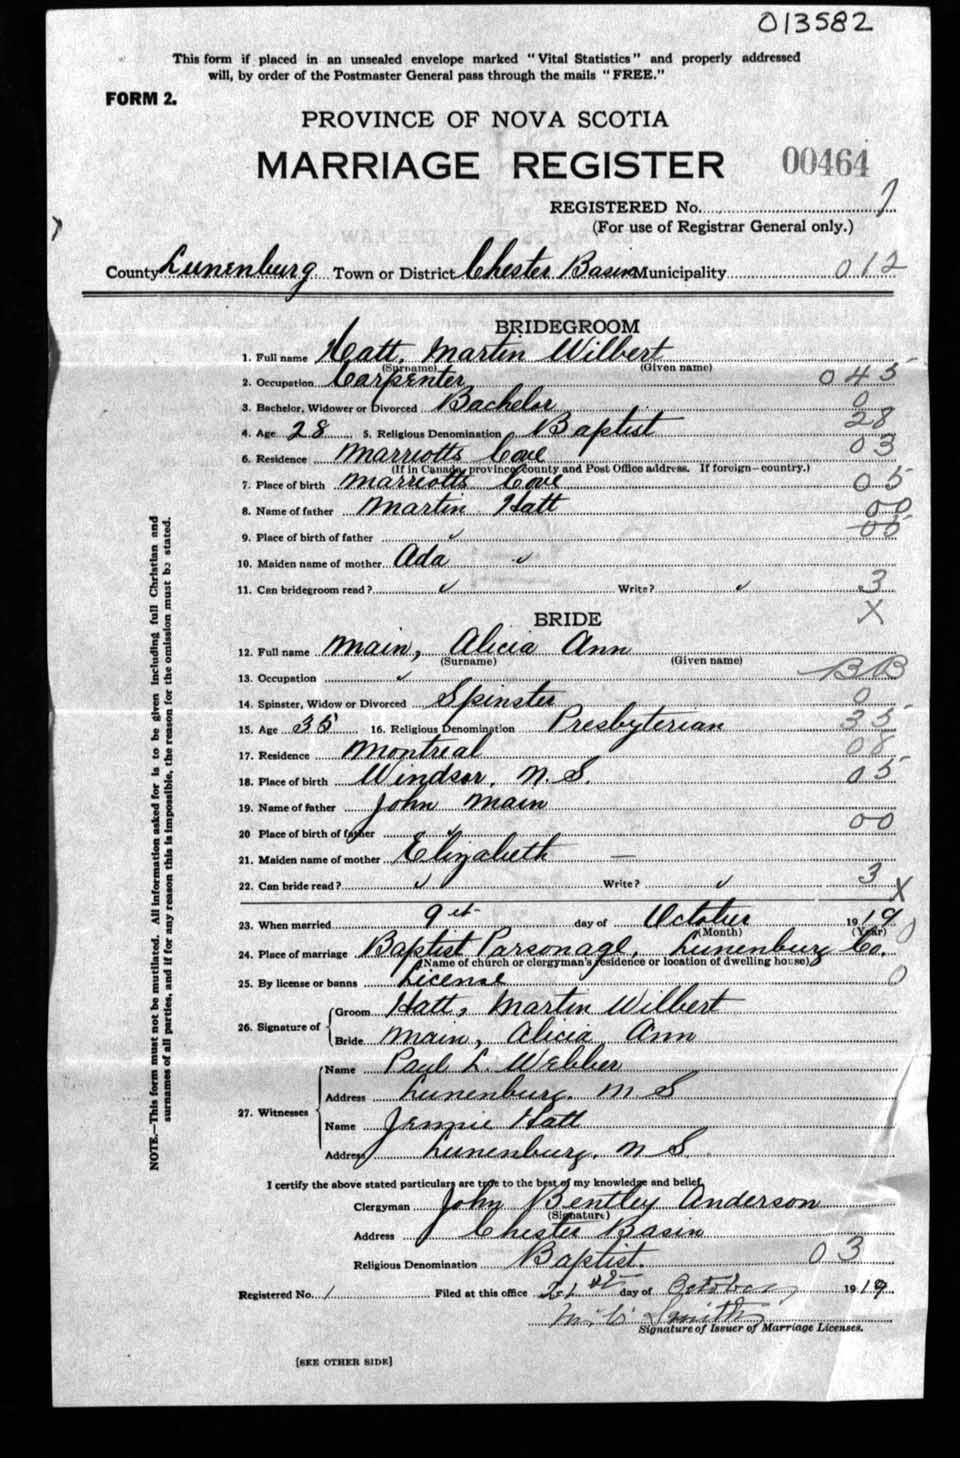 013582
This form if placed in an unsealed envelope marked "Vital Statistics" and properly addressed
will, by order of the Postmaster General pass through the mails "FREE."
FORM 2.
PROVINCE OF NOVA SCOTIA
MARRIAGE REGISTER 00464
REGISTERED No. 1
(For use of Registrar General only.)
County Lunenburg Town or District Chester Basin Municipality 012
BRIDEGROOM
1. Full name Hatt, Martin Wilbert
(Surname) (Given name)
2. Occupation Carpenter 043
3. Bachelor, Widower or Divorced Bachelor 0
4. Age 28 5. Religious Denomination Baptist 28
6. Residence Marriotts Cove 03
(If in Canada, province, county and Post Office address. If foreign—country.)
7. Place of birth Marriotts Cove 05
8. Name of father Martin Hatt 00
9. Place of birth of father ✓ 05
10. Maiden name of mother Ada ✓
11. Can bridegroom read? ✓ Write? ✓ 3
X
BRIDE
12. Full name Main, Alicia Ann
(Surname) (Given name)
13. Occupation ✓ BB
14. Spinster, Widow or Divorced Spinster 0
15. Age 35 16. Religious Denomination Presbyterian 35
17. Residence Montreal 08
18. Place of birth Windsor, N.S. 05
19. Name of father John Main
20 Place of birth of father ✓ 00
21. Maiden name of mother Elizabeth —
22. Can bride read? ✓ Write? ✓ 3 X
23. When married 9et day of October 1919
(Month) (Year)
24. Place of marriage Baptist Parsonage, Lunenburg Co. 0
(Name of church or clergyman's residence or location of dwelling house)
25. By license or banns License 0
26. Signature of Groom Hatt, Martin Wilbert
Bride Main, Alicia Ann
27. Witnesses Name Paul L. Webber
Address Lunenburg, N S
Name Jennie Hatt
Address Lunenburg, N S.
I certify the above stated particulars are true to the best of my knowledge and belief,
Clergyman John Bentley Anderson
(Signature)
Address Chester Basin
Religious Denomination Baptist. 03
Registered No. 1 Filed at this office 21st day of October 1919
Smith
Signature of Issuer of Marriage Licenses.
[SEE OTHER SIDE]
NOTE.—This form must not be mutilated. All information asked for is to be given including full Christian and
surnames of all parties, and if for any reason this is impossible, the reason for the omission must be stated.